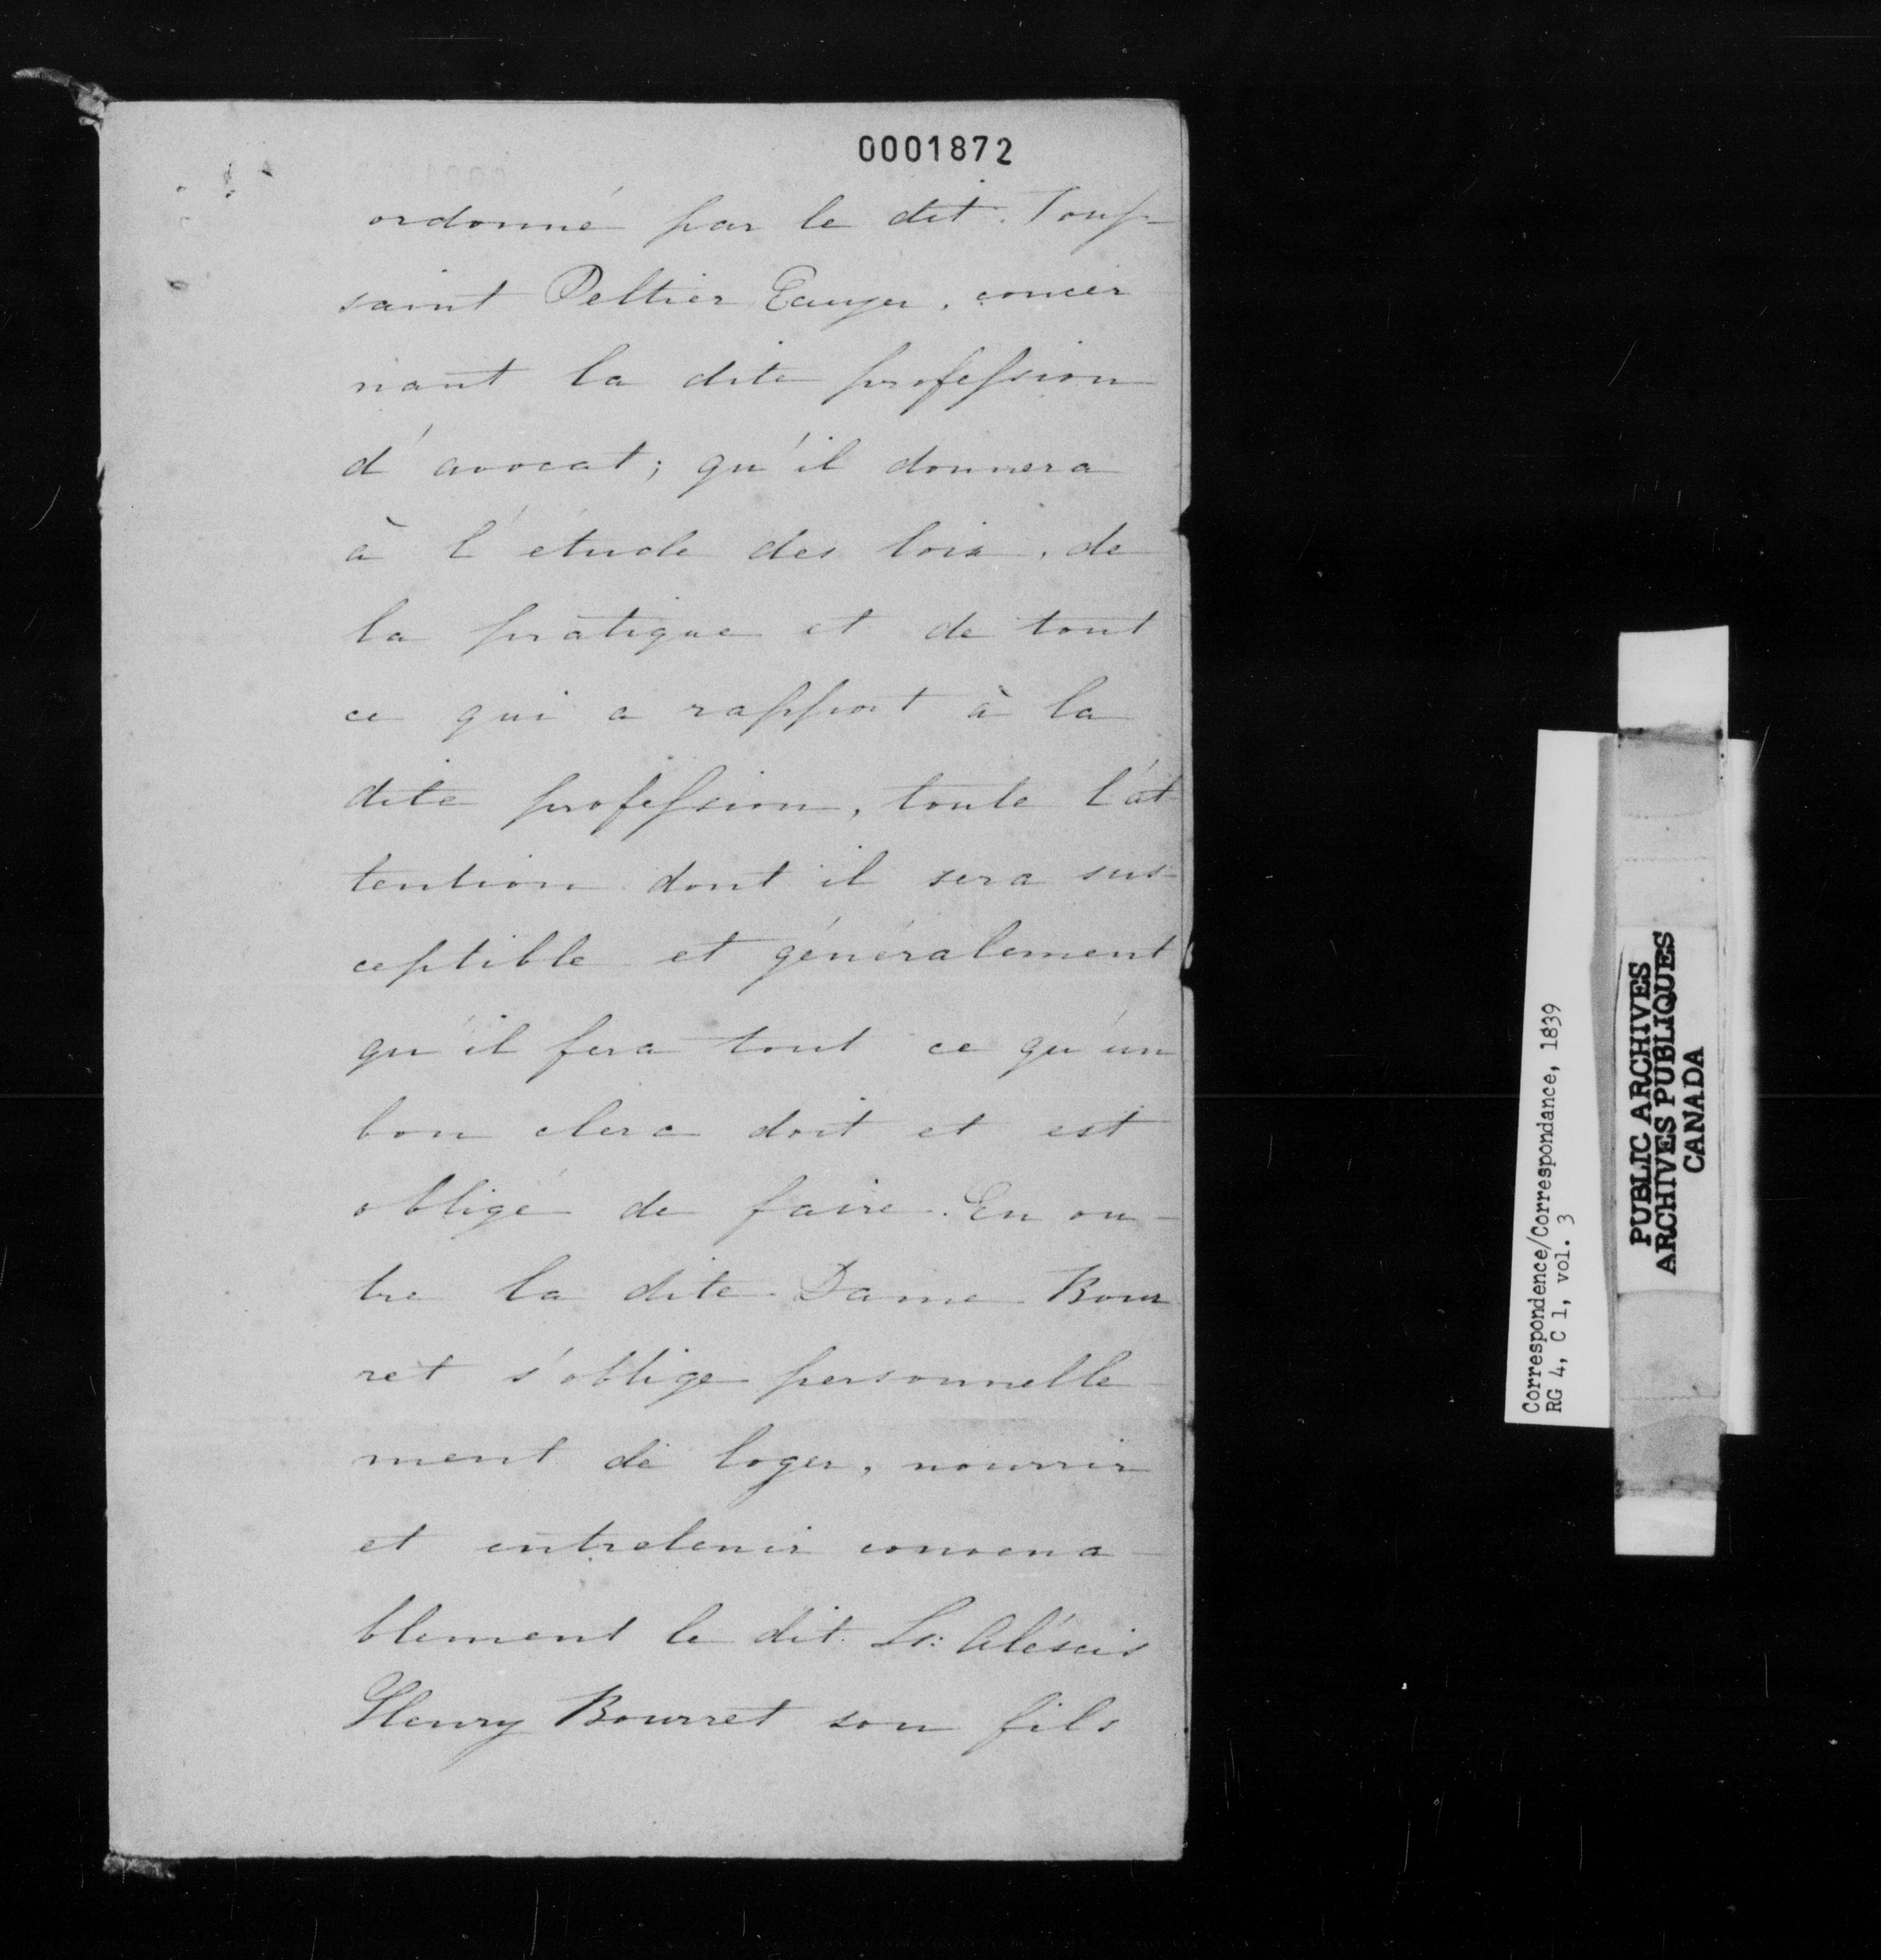 0001872
ordonné par le dit Tous-
saint Peltier Ecuyer, concer
nant la dite profession
d'avocat; qu'il donnera
à l'étude des lois, de
la pratique et de tout
ce qui a rapport à la
dite profession, toute l'at
tention dont il sera sus-
ceptible et généralement
qu'il fera tout ce qu'un
bon clerc doit et est
obligé de faire. En ou-
tre la dite Dame Bour
ret s'oblige personnelle-
ment de loger, nourrir
et entretenir convena-
blement le dit Sr: Aléxis
Henry Bourret son fils
Correspondence/Correspondance, 1839
RG 4, C 1, vol. 3
PUBLIC ARCHIVES
ARCHIVES PUBLIQUES
CANADA